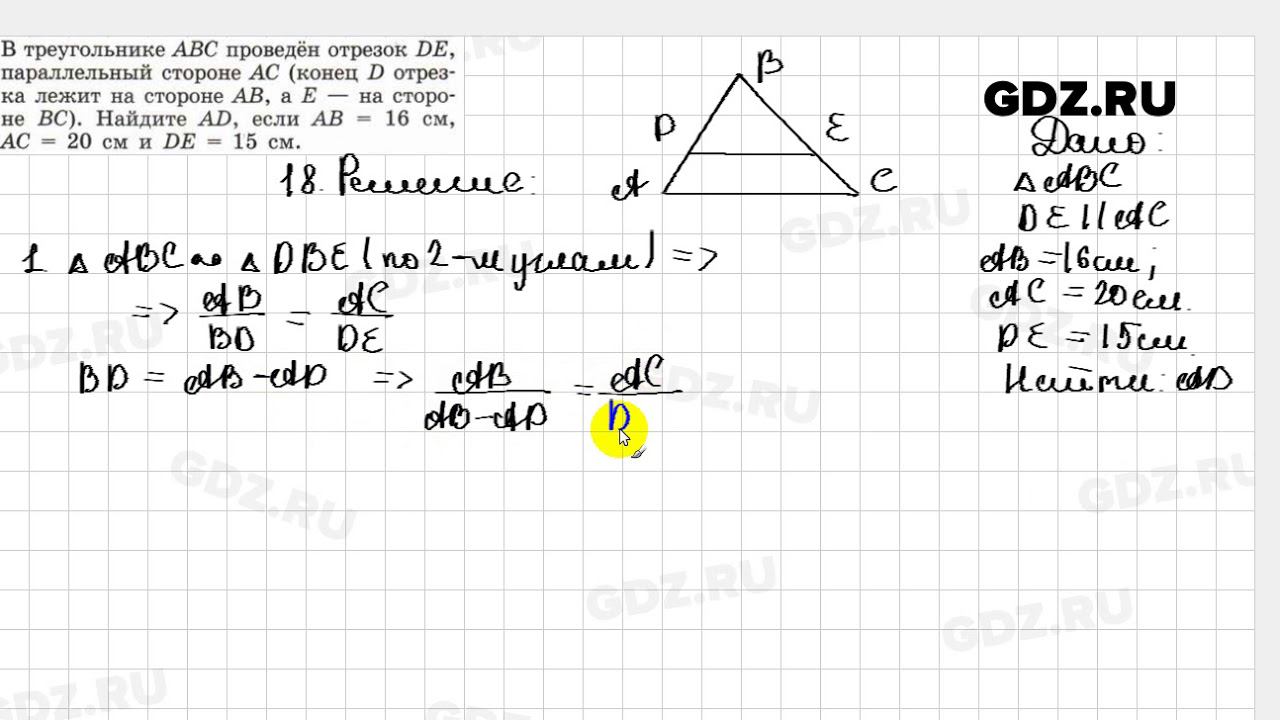 В треугольнике ABC проведён отрезок DE,
параллельный стороне AC (конец D отрез-
ка лежит на стороне AB, а E — на сторо-
не BC). Найдите AD, если AB = 16 см,
AC = 20 см и DE = 15 см.
GDZ.RU
B
D
E
A
C
Дано:
△ABC
DE || AC
AB = 16 см;
AC = 20 см.
DE = 15 см.
Найти: AD
18. Решение:
1. △ABC ∾ △DBE (по 2-м углам) =>
=> AB/BD = AC/DE
BD = AB - AD => AB/(AB - AD) = AC/D
GDZ.RU
GDZ.RU
GDZ.RU
GDZ.RU
GDZ.RU
GDZ.RU
GDZ.RU
GDZ.RU
GDZ.RU
GDZ.RU